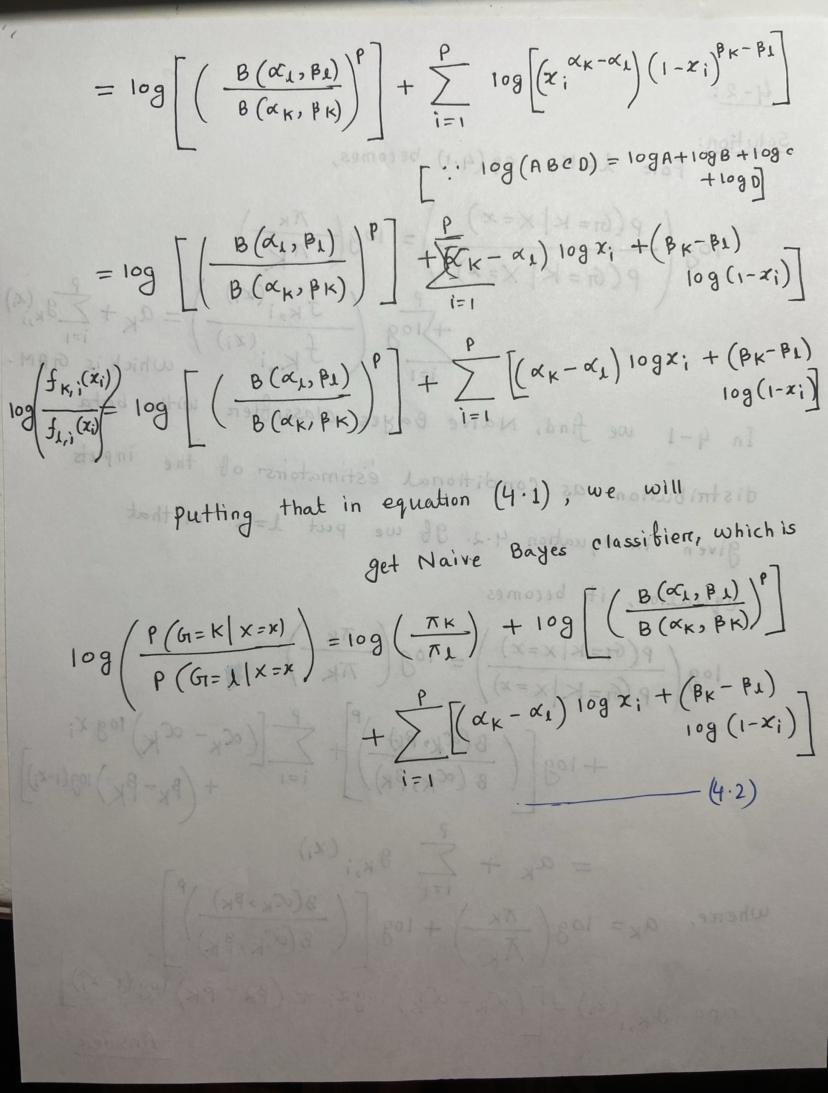 = log[(B(α₁, β₁)/B(α_K, β_K))^P] + Σ_{i=1}^{P} log[(x_i^{α_K-α₁})(1-x_i)^{β_K-β₁}]
[∵ log(ABCD) = logA+logB+logC
+logD]
= log[(B(α₁, β₁)/B(α_K, β_K))^P] + Σ_{i=1}^{P}(α_K-α₁) log x_i + (β_K-β₁)
log(1-x_i)]
log(f_{K,i}(x_i)/f_{1,i}(x_i)) = log[(B(α₁, β₁)/B(α_K, β_K))^P] + Σ_{i=1}^{P}[(α_K-α₁) log x_i + (β_K-β₁)
log(1-x_i)]
putting that in equation (4.1), we will
get Naive Bayes classifierr, which is
log(P(G=K|X=x)/P(G=1|X=x) = log(π_K/π₁) + log[(B(α₁, β₁)/B(α_K, β_K))^P]
+ Σ_{i=1}^{P}[(α_K-α₁) log x_i + (β_K-β₁)
log(1-x_i)]
(4.2)